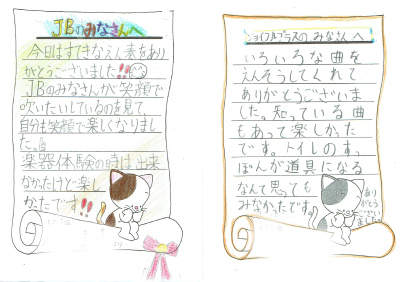 JBのみなさんへ
今日はすてきなえん奏をあり
がとうございました!!
JBのみなさんが笑顔で
吹いたいしているのを見て、
自分も笑顔で楽しくなりまし
た。
楽器体験の時は出来
なかったけど楽し
かたです!!
ジョイフルブラスのみなさんへ
いろいろな曲を
えんそうしてくれて
ありがとうございま
した。知っている曲
もあって楽しかった
です。トイレのすっ
ぽんが道具になる
なんて思っても
みなかったです。
ありがとうございました